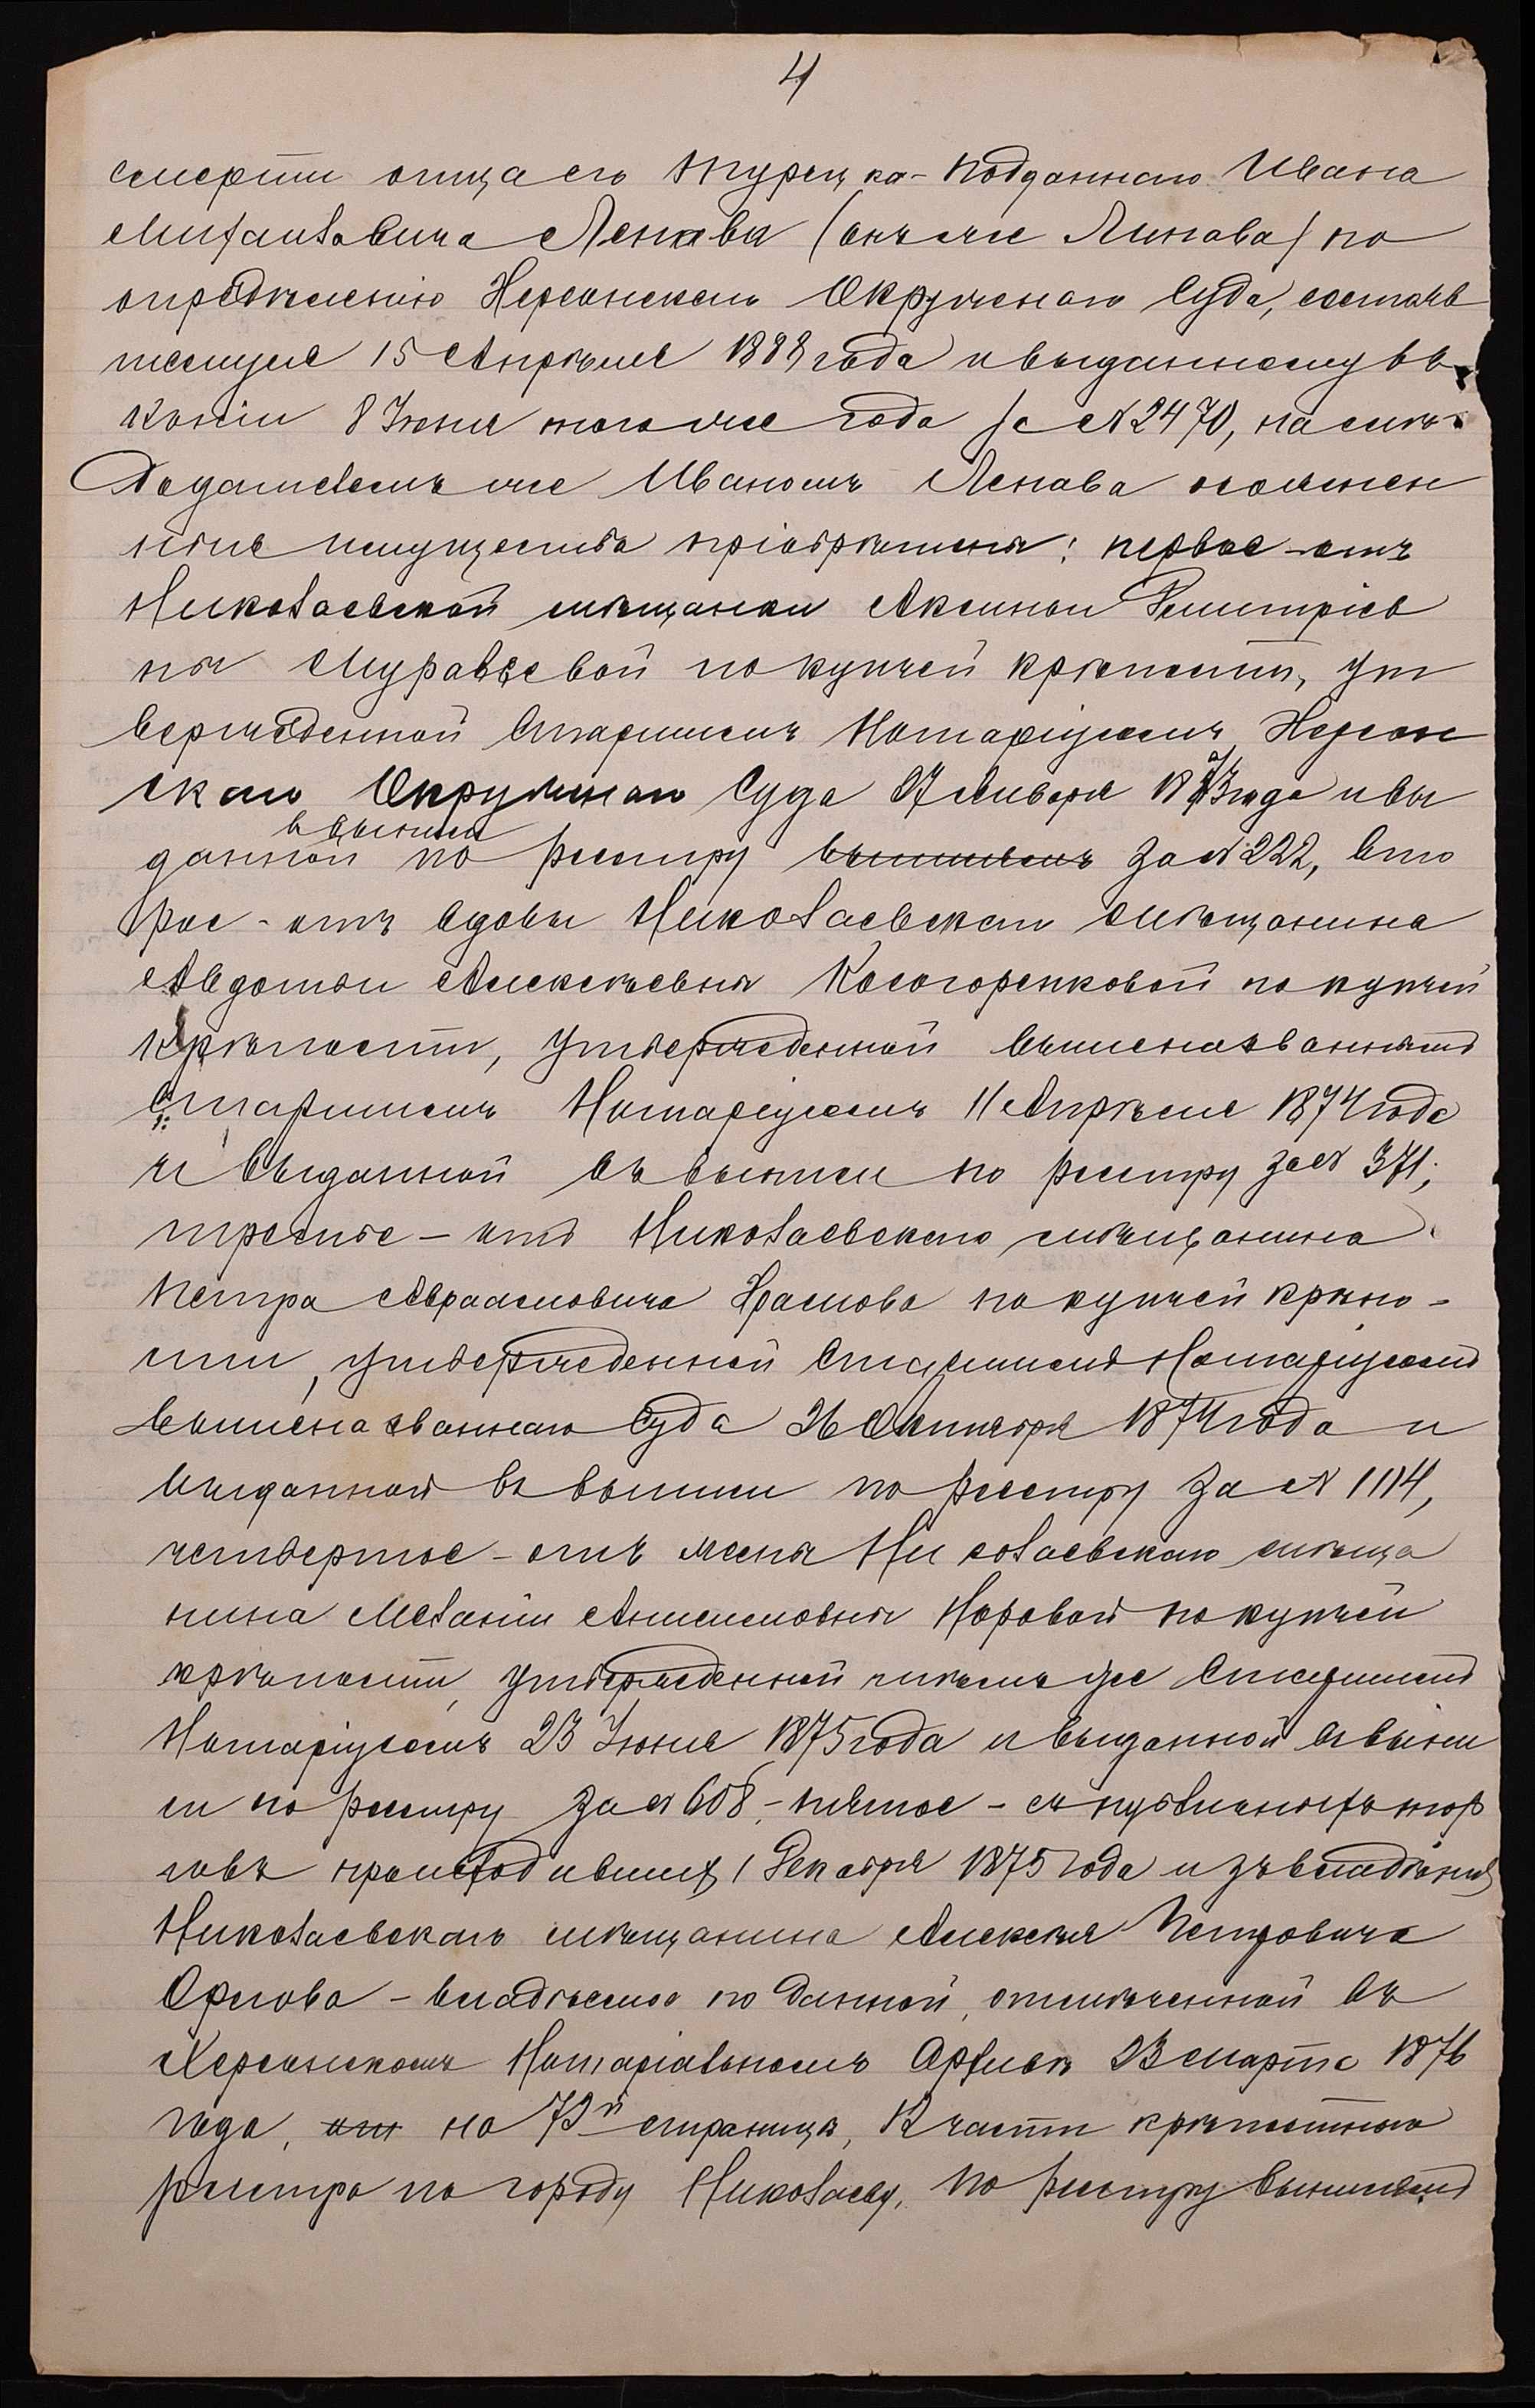 4
смерти отца его турецко-подданнаго Ивана
Михайловича Ленова (онъ же Линова) по
опредѣленію Херсонскаго Окружнаго Суда, состояв
шемуся 15 Апрѣля 1888 года и выданному въ
копіи 8 Іюня того же года за № 2470, насл
додателемъ же Иваномъ Ленова означен
ныя имущества пріобрѣтены: первое - отъ
Николаевской мѣщанки Аксиньи Дмитріев
ны Муравьевой по купчей крѣпости, ут
вержденной Старшимъ Нотаріусомъ Херсон
скаго Окружнаго Суда 27 Января 1873 года и вы
данной въ выписи по реестру за № 222, вто
рое - отъ вдовы Николаевскаго мѣщанина
Авдотьи Алексѣевны Косогоренковой по купчей
крѣпости, утвержденной вышеназваннымъ
Старшимъ Нотаріусомъ 11 Апрѣля 1874 года
и выданной въ выписи по реестру за № 371;
третье - отъ Николаевскаго мѣщанина
Петра Авраамовича Храмова по купчей крѣпо-
сти, утвержденной Старшимъ Нотаріусомъ
вышеназваннаго Суда 26 Октября 1874 года и
выданной въ выписи по реестру за № 1114,
четвертое - отъ жены Николаевскаго мѣща
нина Меланіи Анисимовны Норовой по купчей
крѣпости, утвержденной тѣмъ же Старшимъ
Нотаріусомъ 23 Іюня 1875 года и выданной въ выпи
си по реестру за № 608, - пятое - съ публичныхъ тор
говъ происходившихъ 1 Декабря 1875 года изъ владѣнія
Николаевскаго мѣщанина Алексѣя Петровича
Орлова - владѣемое по данной, отмѣченной въ
Херсонскомъ Нотаріальномъ Архивѣ 23 марта 1876
года, на 73й страницѣ, части крѣпостнаго
реестра по городу Николаеву, по реестру